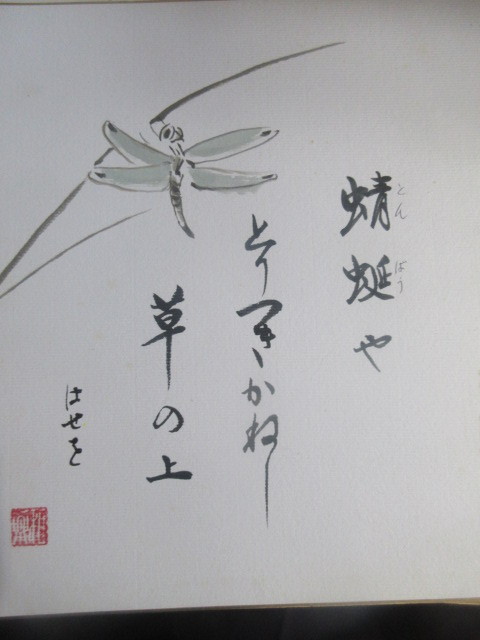 蜻蜓や
とんばう
とりつきかねし
草の上
はせを